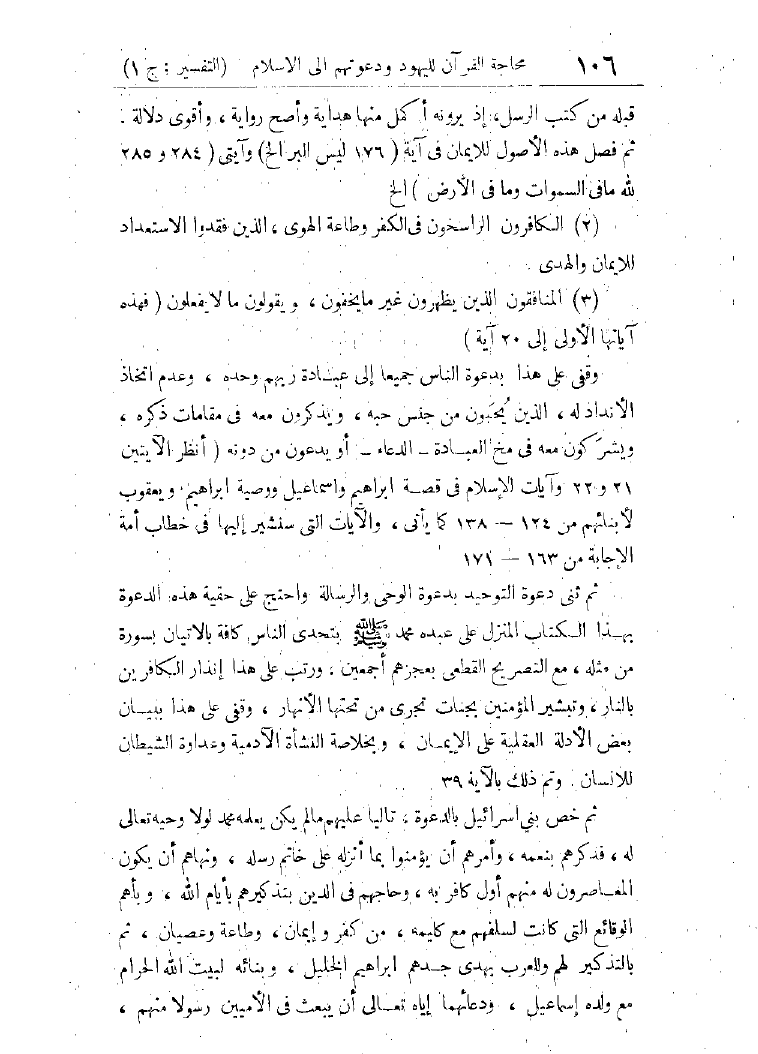 ١٠٦ محاجة القرآن لليهود ودعوتهم الى الاسلام (التفسير : ج ١)
قبله من كتب الرسل، إذ يرونه أكمل منها هداية وأصح رواية ، وأقوى دلالة .
ثم فصل هذه الأصول للايمان فى آية ( ١٧٦ ليس البر الخ) وآيتى ( ٢٨٤ و ٢٨٥
لله مافى السموات وما فى الأرض ) الخ
(٢) الكافرون الراسخون فى الكفر وطاعة الهوى ، الذين فقدوا الاستعداد
للايمان والهدى
(٣) المنافقون الذين يظهرون غير مايخفون ، ويقولون ما لا يفعلون ( فهذه
آياتها الأولى إلى ٢٠ آية )
وقفى على هذا بدعوة الناس جميعا إلى عبادة ربهم وحده ، وعدم اتخاذ
الأنداد له ، الذين يُحَبون من جنس حبه ، ويذكرون معه فى مقامات ذكره ،
ويشركون معه فى مخ العبادة ــ الدعاء ــ أو يدعون من دونه ( أنظر الآيتين
٢١ و ٢٢ وآيات الإسلام فى قصة ابراهيم واسماعيل ووصية ابراهيم ويعقوب
لأبنائهم من ١٢٤ – ١٣٨ كما يأتى ، والآيات التى سنشير إليها فى خطاب أمة
الإجابة من ١٦٣ – ١٧١
ثم ثنى دعوة التوحيد بدعوة الوحى والرسالة واحتج على حقية هذه الدعوة
بهذا الكتاب المنزل على عبده محمد ﷺ بتحدى الناس كافة بالاتيان بسورة
من مثله ، مع التصريح القطعى بعجزهم أجمعين ، ورتب على هذا إنذار الكافرين
بالنار ، وتبشير المؤمنين بجنات تجرى من تحتها الأنهار ، وقفى على هذا ببيان
بعض الأدلة العقلية على الإيمان ، وبخلاصة النشأة الآدمية وعداوة الشيطان
للانسان . وتم ذلك بالآية ٣٩
ثم خص بني اسرائيل بالدعوة ، تاليا عليهم مالم يكن يعلمه محمد لولا وحيه تعالى
له ، فذكرهم بنعمه ، وأمرهم أن يؤمنوا بما أنزله على خاتم رسله ، ونهاهم أن يكون
المعاصرون له منهم أول كافر به ، وحاجهم فى الدين بتذكيرهم بأيام الله ، وبأهم
الوقائع التى كانت لسلفهم مع كليمه ، من كفر وإيمان ، وطاعة وعصيان ، ثم
بالتذكير لهم وللعرب بهدى جدهم ابراهيم الخليل ، وبنائه لبيت الله الحرام
مع ولده إسماعيل ، ودعائهما إياه تعالى أن يبعث فى الأميين رسولا منهم ،